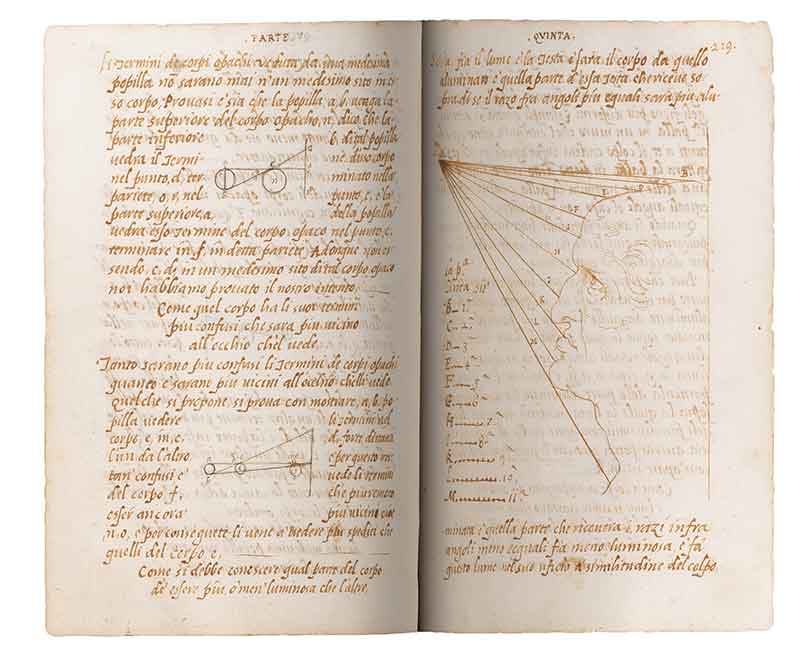 PARTE
li Termini de corpi opachi veduta da una medesima
popilla non sarano mai n' un medesimo sito in es
so corpo. Provasi e sia che la popilla, a, b, venga la
parte superiore del corpo opacho, n, dico che la
parte inferiore b, di tal popilla
vedra il Termi- ne, di o corpo
nel punto, d, ter minato nella
pariete, o, r, nel punto, e, e la
parte superiore, a, della popilla
vedra esso Termine del corpo opaco nel punto, c,
terminare in, f, in detta pariete. Adonque non es
sendo, c, d, in un medesimo sito di tal corpo opaco
noi habbiamo provato il nostro intento.
Come quel corpo ha li suoi termini
piu confusi che sara piu vicino
all occhio che'l vede
Tanto serano piu confusi li Termini de corpi opachi
quanto e serano piu vicini all occhio che li vede
Quel che si propone si prova con mostrare, a, b, po
pilla vedere li termini nel
corpo, e, in, c, d, forte distanti
l'un da l'altro e per questo re
stari confusi e vede li termini
del corpo f, che piu remoto
esser ancora piu vicini cioe
n, o, e per conseguete li viene a vedere piu spediti che
quelli del corpo e,
Come si debbe conoscere qual parte del corpo
de essere piu, o men' luminosa che l'altre
QUINTA.
219.
fia il lume e la Testa e sara il corpo da quello
aluminati e quella parte d'essa Testa che riceve so
pra di se il razo fra angoli piu equali sara piu alu
B
E
F
G
H
K
L
M
B_1
C_2
D_3
E_4
F_5
G_6
H_7
I_8
K_9
L_10
M_11
minata e quella parte che ricevera i, razi infra
angoli meno equali fia meno luminosa, e fa
questo lume nel suo uficio a similitudine del colpo